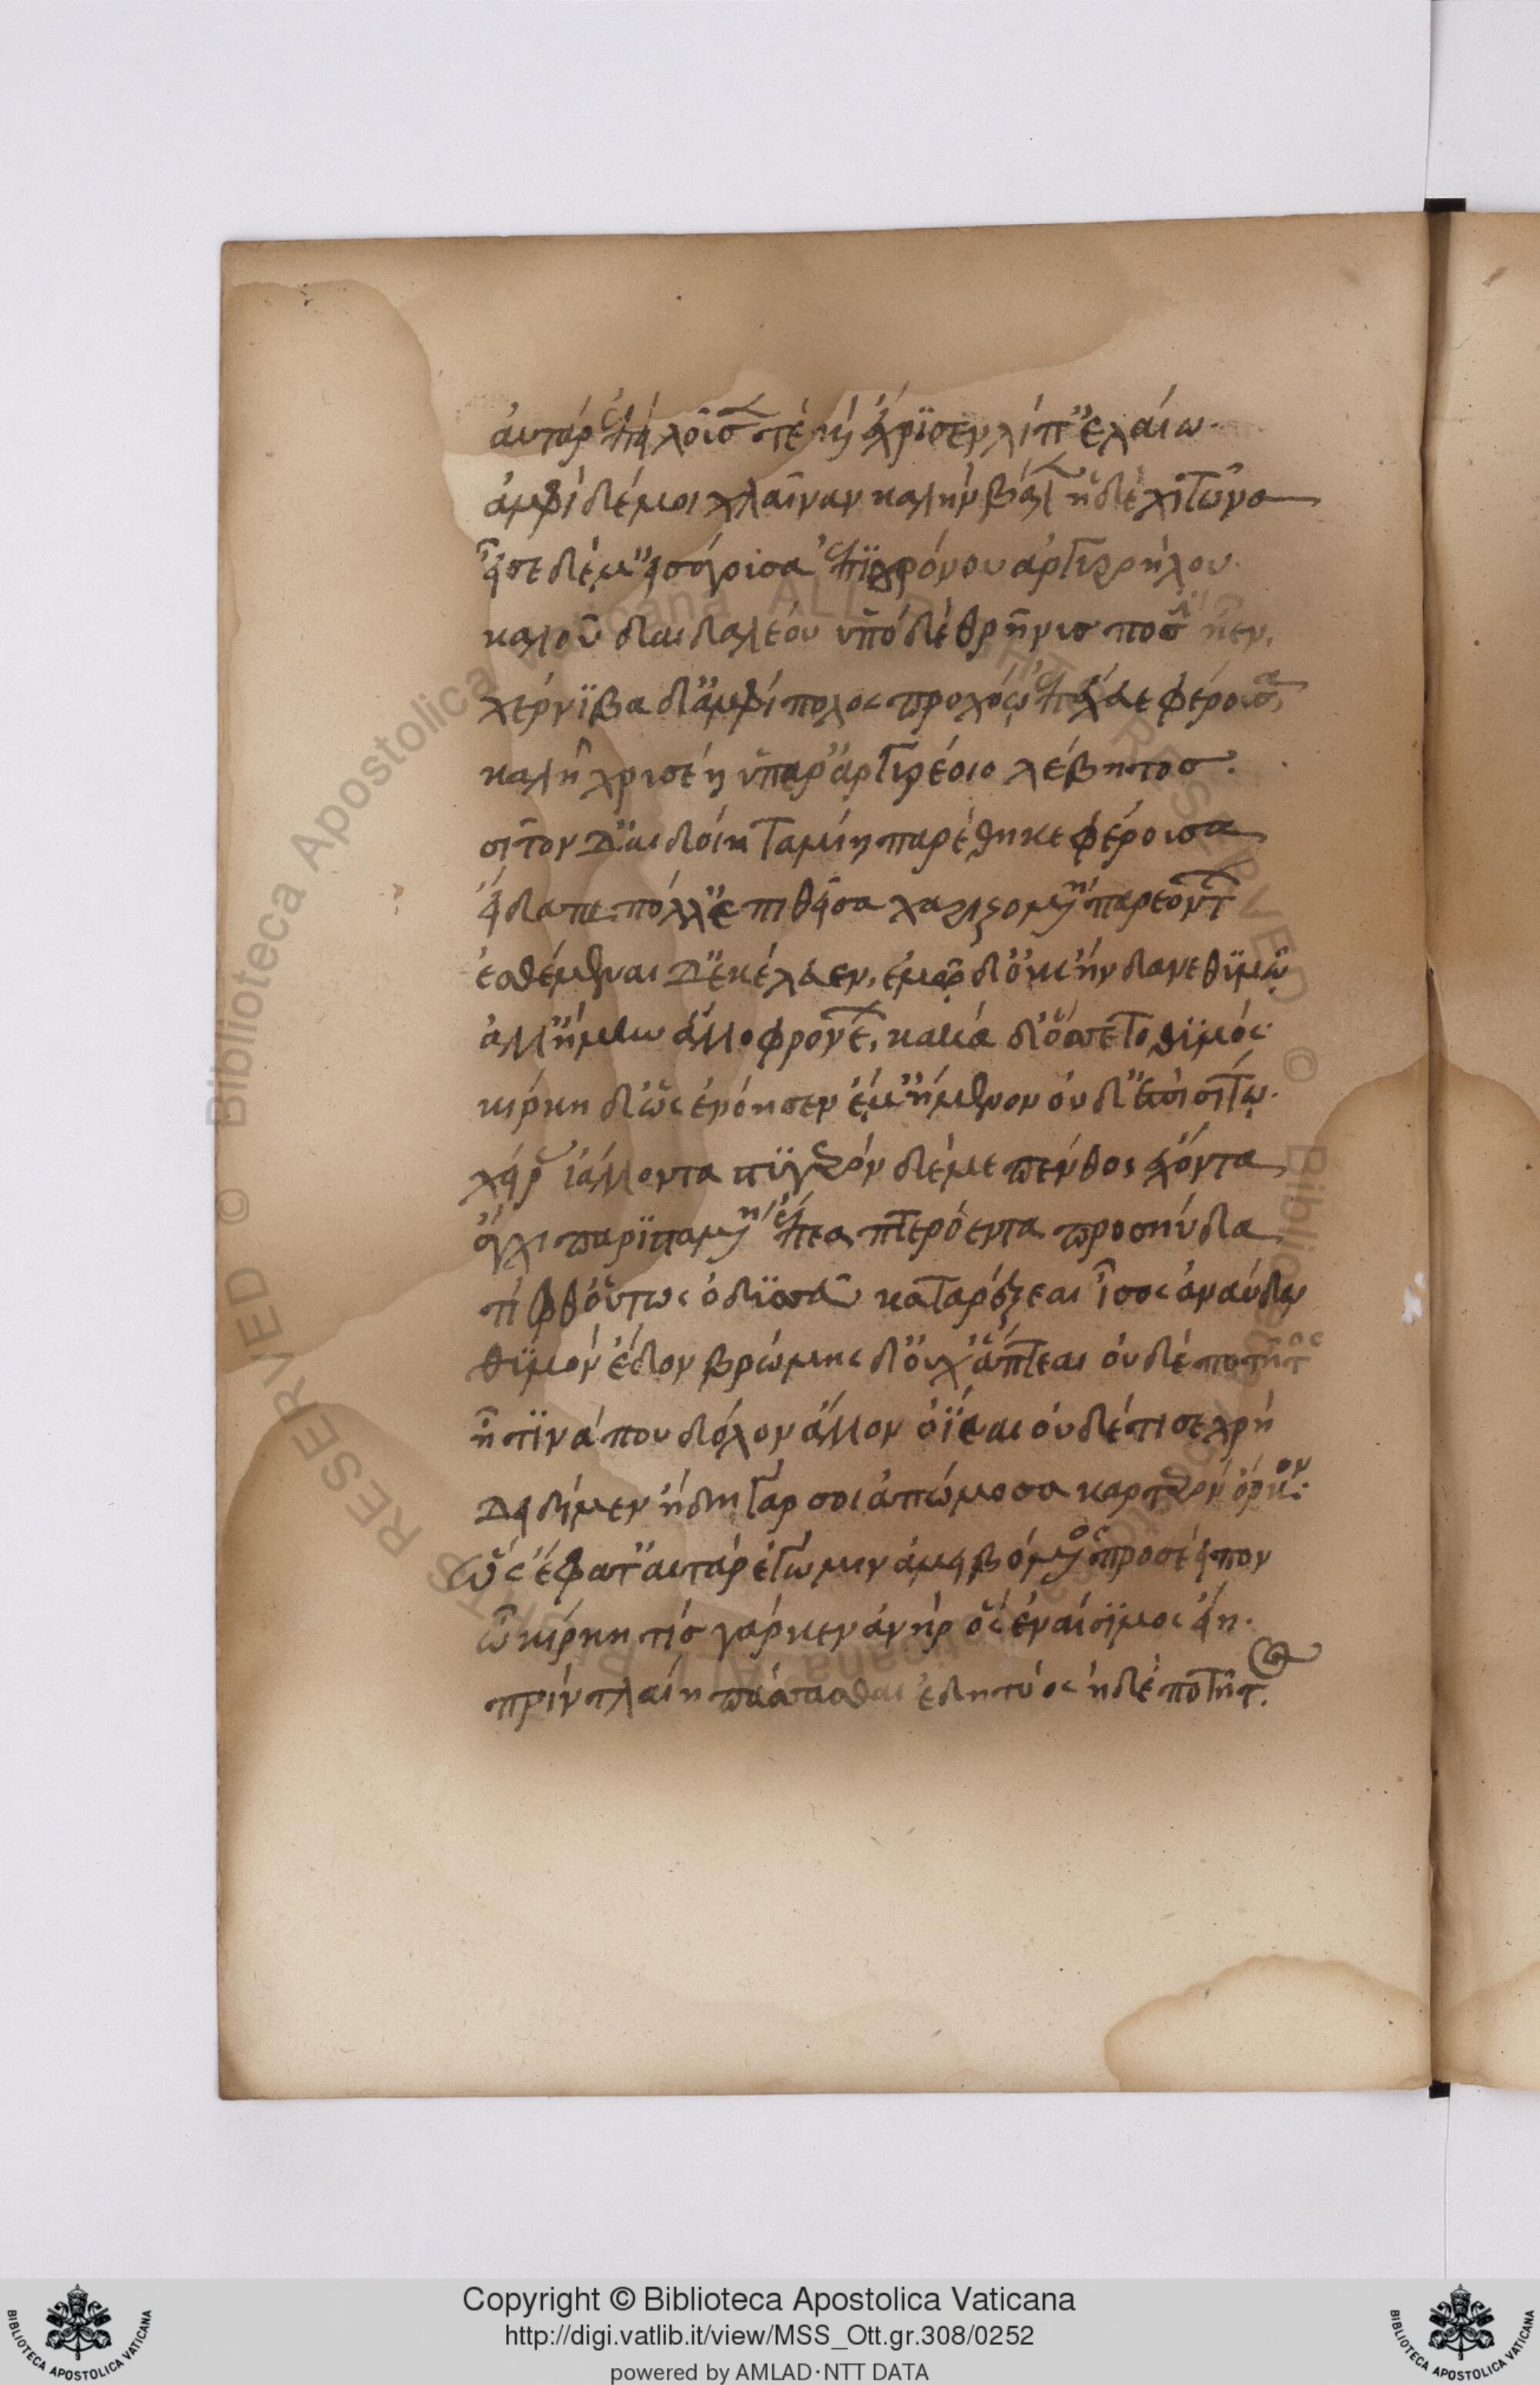 αὐτάρ ἐπεὶ λοῦσέν τε καὶ ἔχρϊσεν λίπ' ἐλαίω.
ἀμφὶ δέ μοι χλαῖναν καλὴν βάλεν ἠδὲ χιτῶνα
εἷσε δέ μ' εἰσάγουσα ἐπῒ θρόνου ἀργυροήλου.
καλοῦ δαιδαλέου ὑπὸ δὲ θρῆνυσ ποσὶν ἦεν.
χέρνϊβα δ' ἀμφίπολος προχόω ἐπέχευε φέρουσα,
καλῆ χρυσείη ὑπὲρ ἀργυρέοιο λέβητοσ.
σῖτον δ' αἰδοίη ταμίη παρέθηκε φέρουσα
εἴδατα πόλλ' ἐπιθεῖσα χαριζομένη παρεόντων
ἐσθέμεναι δ' ἐκέλευεν, ἐμῶ δ' οὐχ ἥνδανε θϋμῶ
ἀλλ' ἥμην ἀλλοφρονέων, κακὰ δ' ὄσσετο θϋμός.
κίρκη δ' ὡς ἐνόησεν ἔμ' ἥμενον οὐδ' ἐπὶ σίτω.
χεῖρας ἰάλλοντα στϋγερὸν δέ με πένθος ἔχοντα,
ἄγχι παρϊσταμένη ἔπεα πτερόεντα προσηύδα
τίφθ' οὕτως ὀδϋσεῦ κατ' ἄρ' ἕζεαι ἶσος ἀναύδω
θϋμὸν ἔδων βρώμης δ' οὐχ ἅπτεαι οὐδὲ ποτῆτος
ἦ τϊνά που δόλον ἄλλον ὀΐεαι οὐδέ τι σε χρή
δειδίμεν ἤδη γάρ σοι ἀπώμοσα καρτερὸν ὅρκον:
ὣς ἔφατ' αὐτὰρ ἐγώ μιν ἀμειβόμενος προσέειπον
ὦ κίρκη τίσ γάρ κεν ἀνὴρ ὃς ἐναίσϊμος εἴη.
πρὶν τλαίη πάσασθαι ἐδητύος ἠδὲ ποτῆτος.
Copyright © Biblioteca Apostolica Vaticana
http://digi.vatlib.it/view/MSS_Ott.gr.308/0252
powered by AMLAD·NTT DATA